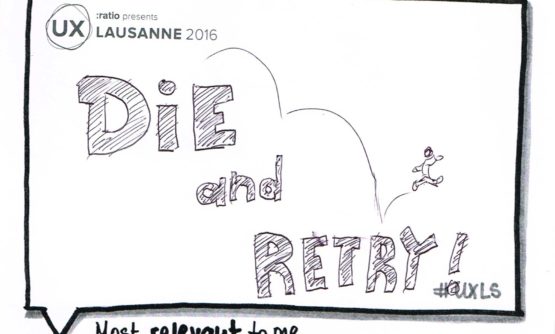 :ratio presents
UX LAUSANNE 2016
DiE
and
RETRY!
#UXLS
Most relevant to me